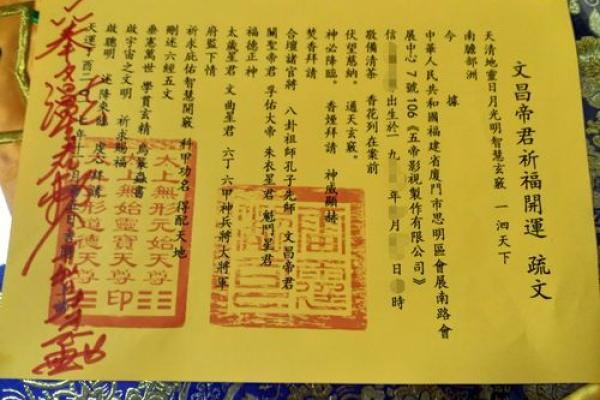 文昌帝君祈福開運 疏文
天清地靈日月光明智慧玄竅 一泗天下
南贍部洲
今 據
中華人民共和國福建省廈門市思明區會展南路會
展中心7號106《五帝影視製作有限公司》
信 出生於一九 年 月 日 時
敬備清茶 香花列在案前
伏望慈納。 通天玄竅。
神必降臨。 香煙拜請 神威顯赫
焚香拜請
合壇諸官將 八卦祖師孔子先師 文昌帝君
關聖帝君 孚佑大帝 朱衣星君 魁鬥星君
福德正神
太歲星君 文曲星君 六丁六甲神兵將大將軍
府監下情
祈求庇佑智慧開竅 科甲功名 得配天地
刪述六經五文
垂憲萬世 學貫玄精
啟宇宙之文明 祈求賜福
啟聰明 述降來臨 拜請
天運丁酉二 七年十
太上無形元始天尊
太上無始靈寶天尊印
太上無形道德天尊